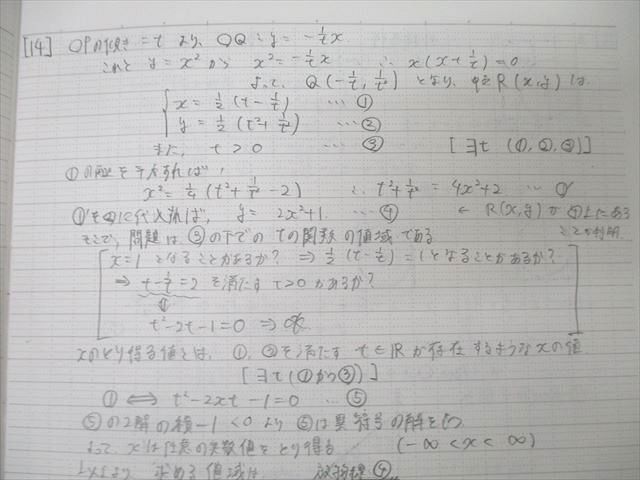 [14] OPの傾き = t より, OQ : y = -1/t x.
これと y = x² から x² = -1/t x ∴ x(x+1/t) = 0
よって, Q(-1/t, 1/t²) となり, 中点 R(x,y) は,
x = 1/2 (t - 1/t) … ①
y = 1/2 (t² + 1/t²) … ②
また, t > 0 … ③ [∃t (①,②,③)]
①の両辺を平方すれば,
x² = 1/4 (t² + 1/t² - 2) ∴ t² + 1/t² = 4x² + 2 … ①'
①'を②に代入すれば, y = 2x² + 1 … ④ ← R(x,y) が④上にある
ことが判明
そこで, 問題は③の下での tの関数の値域である
x = 1 となることがあるか? ⇒ 1/2 (t - 1/t) = 1となることがあるか?
⇒ t - 1/t = 2 を満たす t>0 があるか?
⇕
t² - 2t - 1 = 0 ⇒ OK.
xのとり得る値とは, ①, ③を満たす t∈ℝ が存在するような xの値.
[∃t (①かつ③)]
① ⟺ t² - 2xt - 1 = 0 … ⑤
⑤の2解の積 -1 < 0 より ⑤は異符号の解をもつ
よって xは任意の実数値をとり得る (-∞ < x < ∞)
以上より 求める 値域は 放物線④